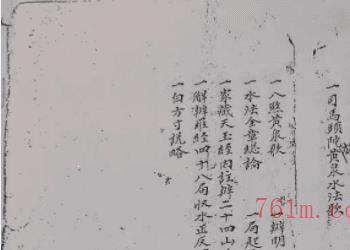 一司馬頭陀黃泉水法歌
一八煞黃泉歌 辨明
一水法金章總論 一局起
一家藏天玉經內註辨二十四山
一解辨雅經四十八局收水並反
一白方寸說略
761m.